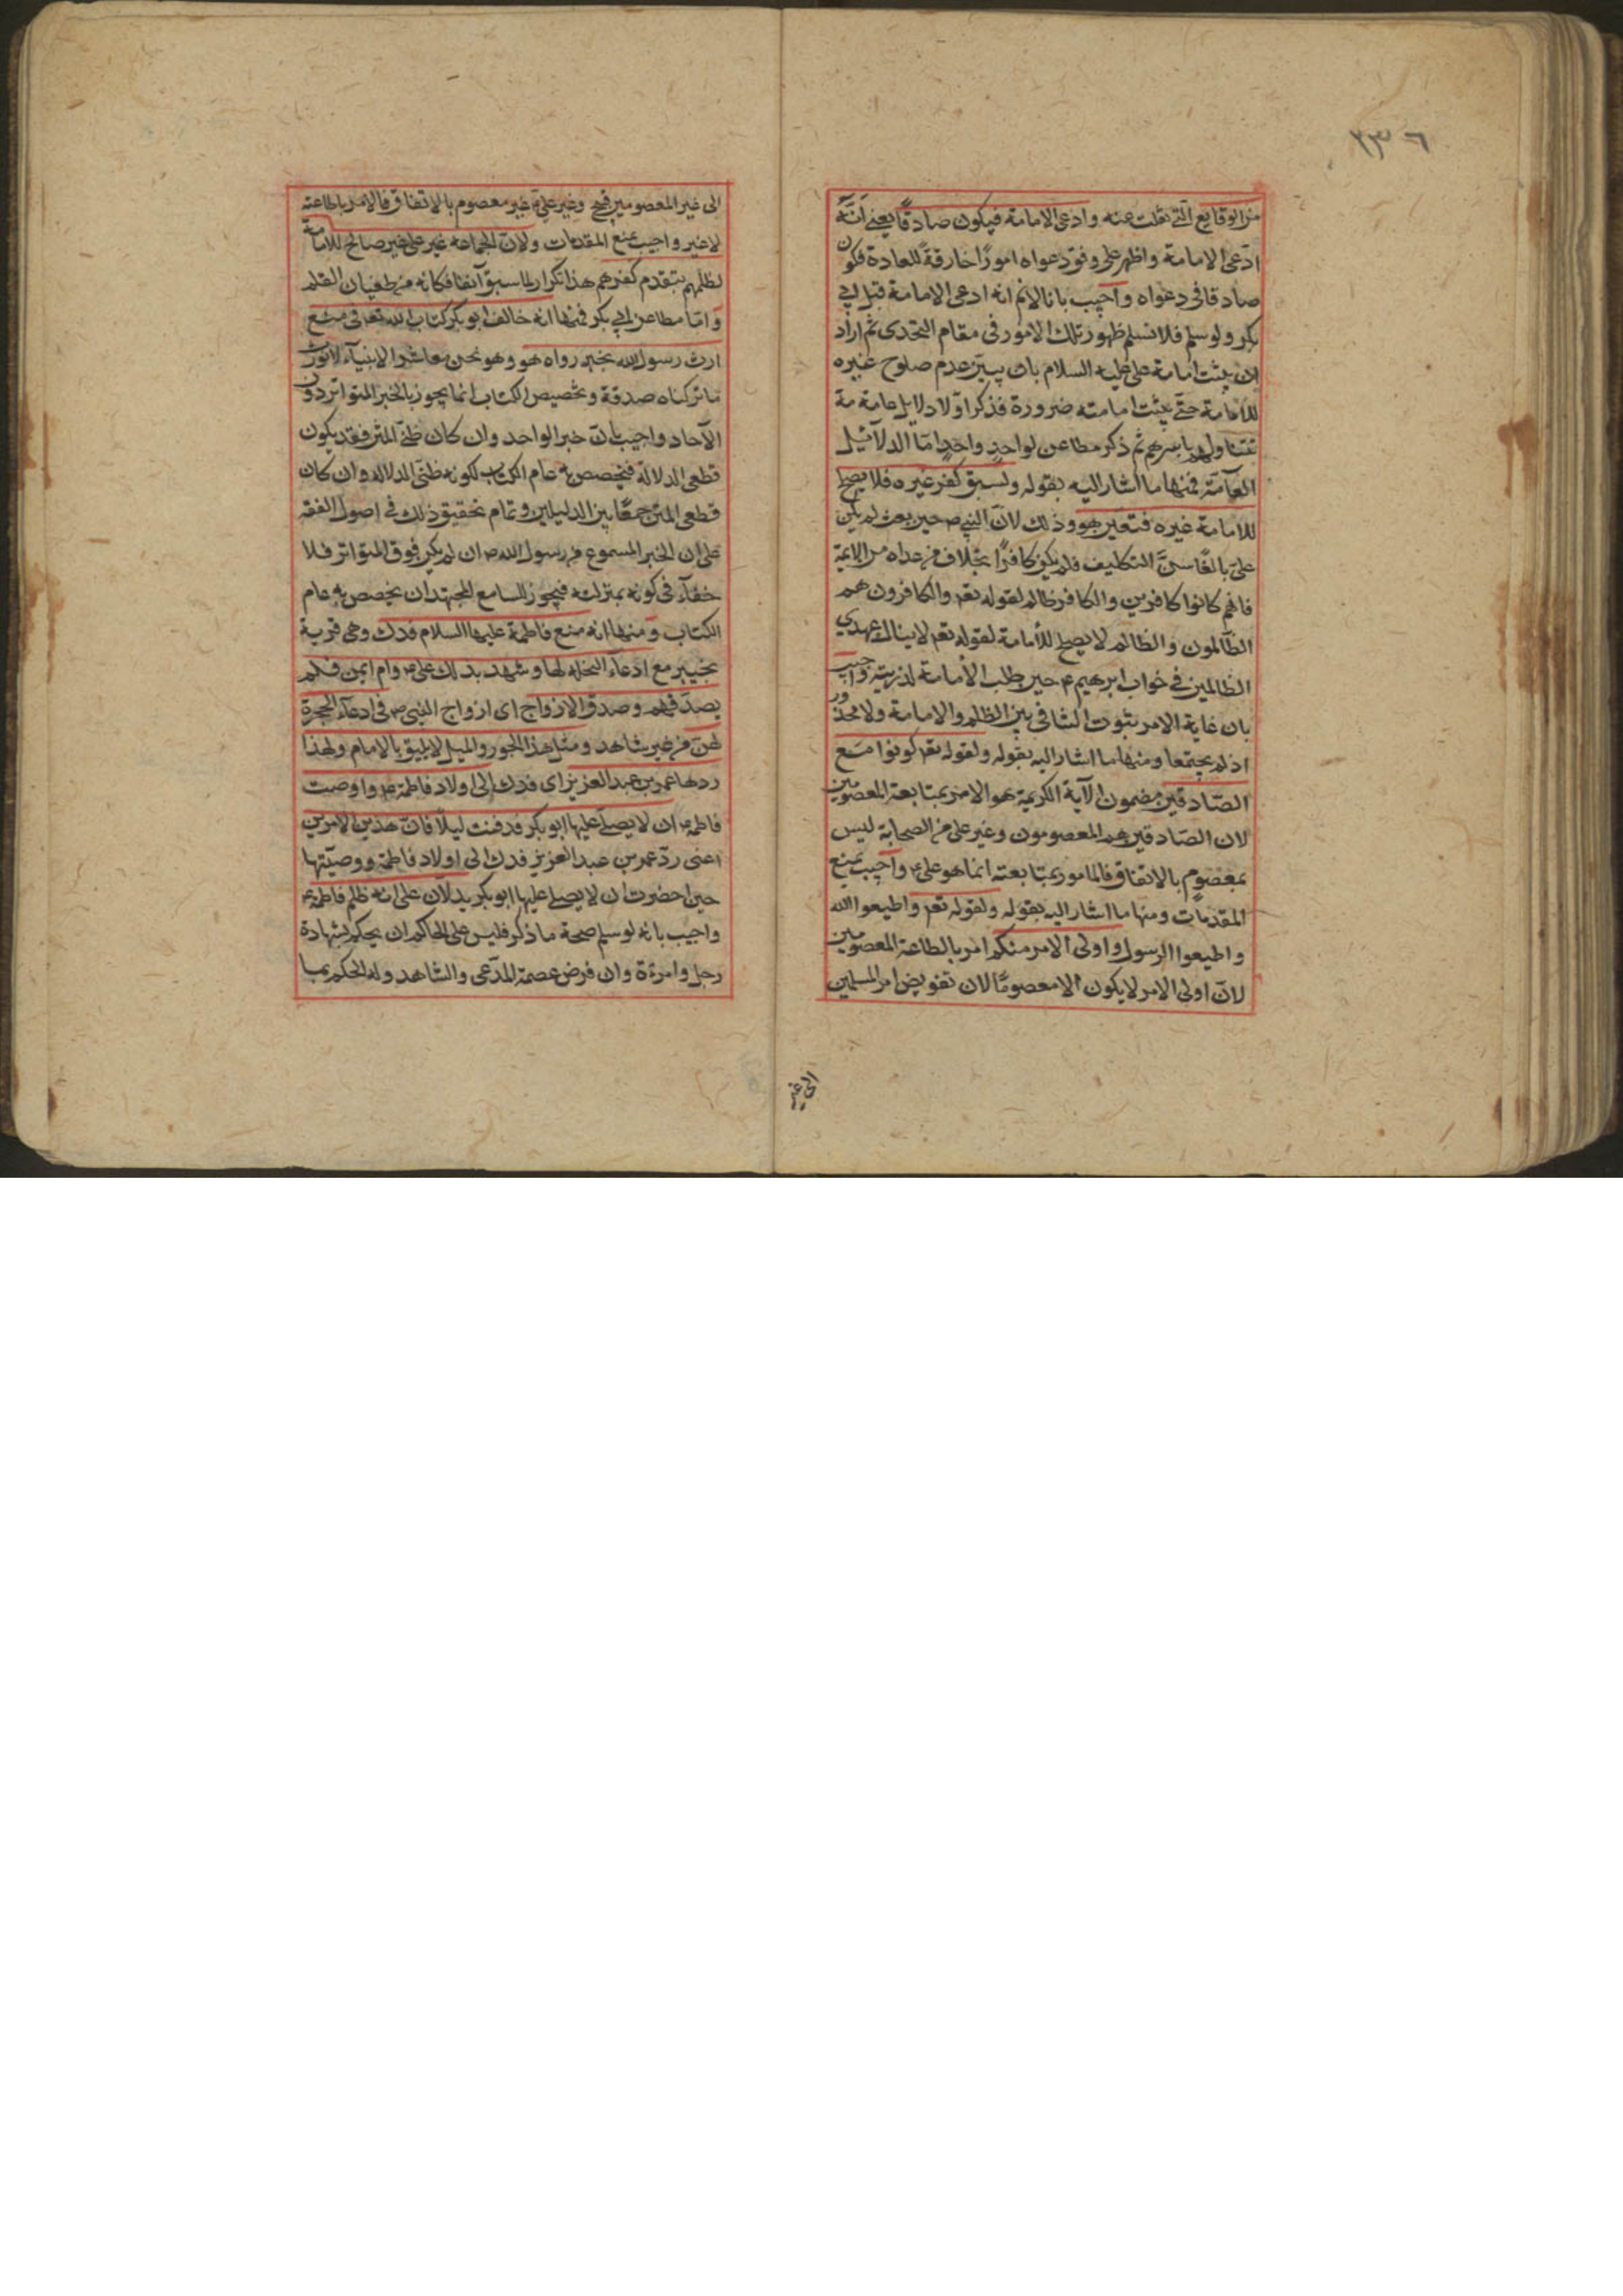 ٣٣٦
من الوقايع التي نقلت عنه وادعى الامامة فيكون صادقًا يعني انّه
ادّعى الامامة واظهر على وفق دعواه امورًا خارقةً للعادة فكون
صادقا في دعواه واجيب بانا لانم انه ادعى الامامة قبل ابي
بكر ولو سلم فلا نسلم ظهور تلك الامور في مقام التحدى ثم اراد
ان يثبت امامة على عليه السلام بان يبيّن عدم صلوح غيره
للامامة حتّى يثبت امامته ضرورة فذكر اوّلا دلايل عامة
تتناولهم باسرهم ثم ذكر مطاعن لواحد واحد امّا الدلائيل
العآمّة فمنها ما اشار اليه بقوله ولسبق كفر غيره فلا يصلح
للامامة غيره فتعيّن هو وذلك لانّ النبي ص حين بعث لم يكن
علىّ بالغًا سنّ التكليف فلم يكن كافرًا بخلاف من عداه من الايمّة
فانهم كانوا كافرين والكافر ظالم لقوله تعم والكافرون هم
الظّالمون والظالم لا يصلح للأمامة لقوله تعم لا ينال عهدي
الظالمين في جواب ابرهيم ع حين طلب الأمامة لذريّته واجيب
بان غاية الامر ثبوت التنافى بين الظلم والامامة ولا محذور
اذ لم يجتمعا ومنها ما اشار اليه بقوله ولقوله تعم كونوا مع
الصّادقين مضمون الآية الكريمة هو الامر بمتابعة المعصومين
لان الصّادقين هم المعصومون وغير على من الصحابة ليس
بمعصوم بالاتفاق فالمامور بمتابعته انما هو على ع واجيب بمنع
المقدمات ومنها ما اشار اليه بقوله ولقوله تعم واطيعوا الله
واطيعوا الرسول واولى الامر منكم امر بالطاعة المعصومين
لانّ اولى الامر لا يكون الا معصومًا لان تفويض امر المسلمين
الى غير
الى غير المعصومين قبيح وغير علىّ غير معصوم بالاتفاق فالامر باطاعته
لا غير واجيب بمنع المقدمات ولانّ الجماعة غير على غير صالح للامامة
لظلمهم بتقدم كفرهم هذا تكرار لما سبق آنفا فكانه من طغيان القلم
وامّا مطاعن ابي بكر فمنها انه خالف ابو بكر كتاب الله تعم في منع
ارث رسول الله بخبر رواه هو وهو نحن معاشر الانبيآء لا نورث
ما تركناه صدقة وتخصيص الكتاب انما يجوز بالخبر المتواتر دون
الآحاد واجيب بانّ خبر الواحد وان كان ظنّى المتن فقد يكون
قطعى الدلالة فيخصص به عام الكتاب لكونه ظنّى الدلالة وان كان
قطعى المتن جمعًا بين الدليلين وتمام تحقيق ذلك في اصول الفقه
على ان الخبر المسموع من رسول الله ص ان لم يكن فوق المتواتر فلا
خفآء في كونه بمنزلته فيجوز للسامع المجتهد ان يخصص به عام
الكتاب ومنها انه منع فاطمة عليها السلام فدك وهي قرية
بخيبر مع ادعآء النحلة لها وشهد بذلك على ع وام ايمن فلم
يصدّقهم وصدق الازواج اى ازواج النبى ص في ادعآء الحجرة
لهنّ من غير شاهد ومثل هذا الجور والميل لا يليق بالامام ولهذا
ردها عمر بن عبد العزيز اى فدك الى اولاد فاطمة ع واوصت
فاطمة ع ان لا يصلى عليها ابو بكر فدفنت ليلًا فانّ هذين الامرين
اعنى ردّ عمر بن عبد العزيز فدك الى اولاد فاطمة ووصيّتها
حين احضرت ان لا يصلى عليها ابو بكر يدلان على انه ظلم فاطمة ع
واجيب بانه لو سلم صحة ما ذكر فليس على الحاكم ان يحكم بشهادة
رجل وامرءة وان فرض عصمة المدّعى والشاهد وله الحكم بما